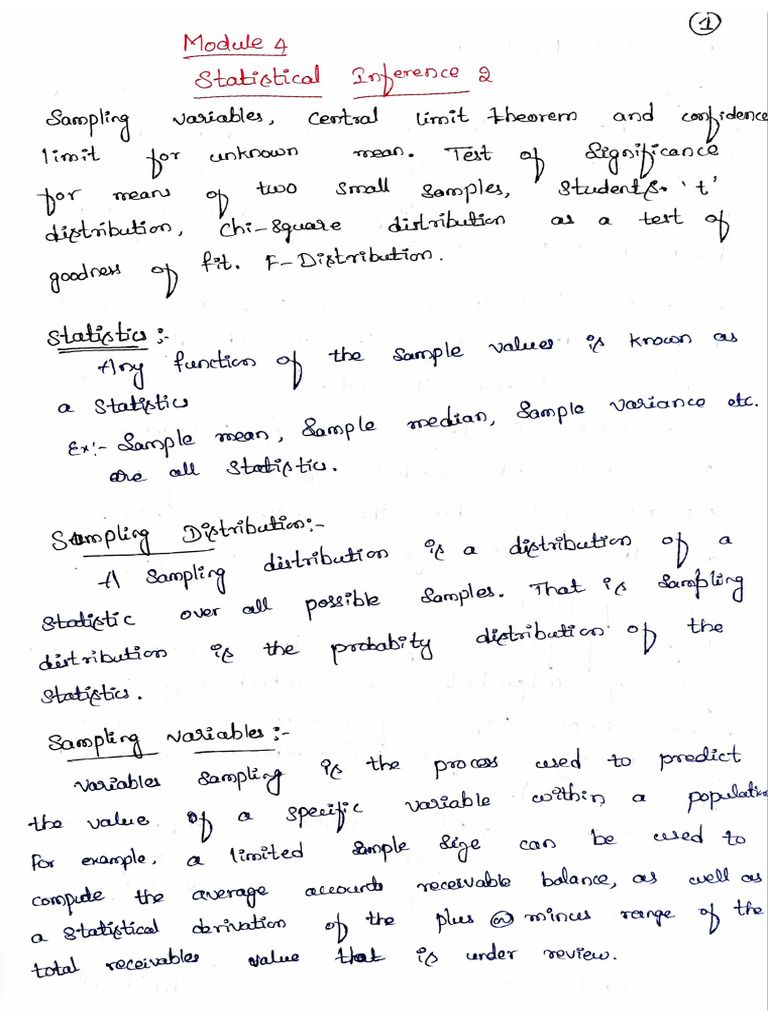 1
Module 4
Statistical Inference 2
Sampling variables, central limit theorem and confidence
limit for unknown mean. Test of Significance
for means of two small samples, students 't'
distribution, Chi-Square distribution as a test of
goodness of fit. F-Distribution.
Statistics:-
Any function of the sample values is known as
a statistics
Ex:- Sample mean, Sample median, Sample variance etc.
are all statistics.
Sampling Distribution:-
A sampling distribution is a distribution of a
statistic over all possible samples. That is sampling
distribution is the probabity distribution of the
statistics.
Sampling variables:-
variables sampling is the process used to predict
the value of a specific variable within a population
For example, a limited sample size can be used to
compute the average accounts receivable balance, as well as
a statistical derivation of the plus or minus range of the
total receivables value that is under review.